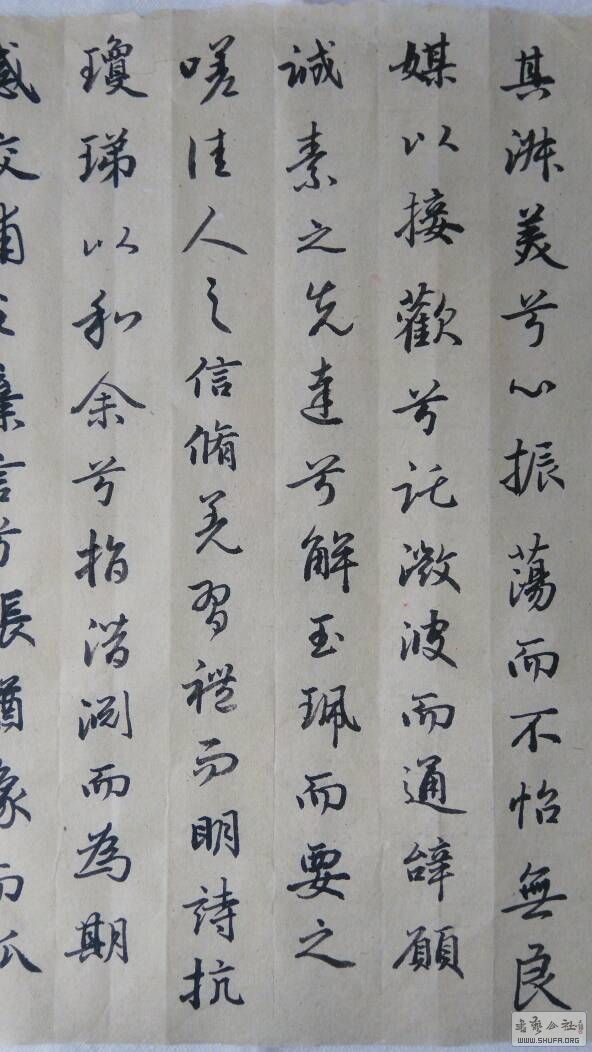 其淑美兮心振蕩而不怡無良
媒以接歡兮託微波而通辭願
誠素之先達兮解玉珮而要之
嗟佳人之信脩羌習禮而明詩抗
瓊珶以和余兮指潛淵而為期
感交甫之棄言兮悵猶豫而狐
书艺公社
WWW.SHUFA.ORG